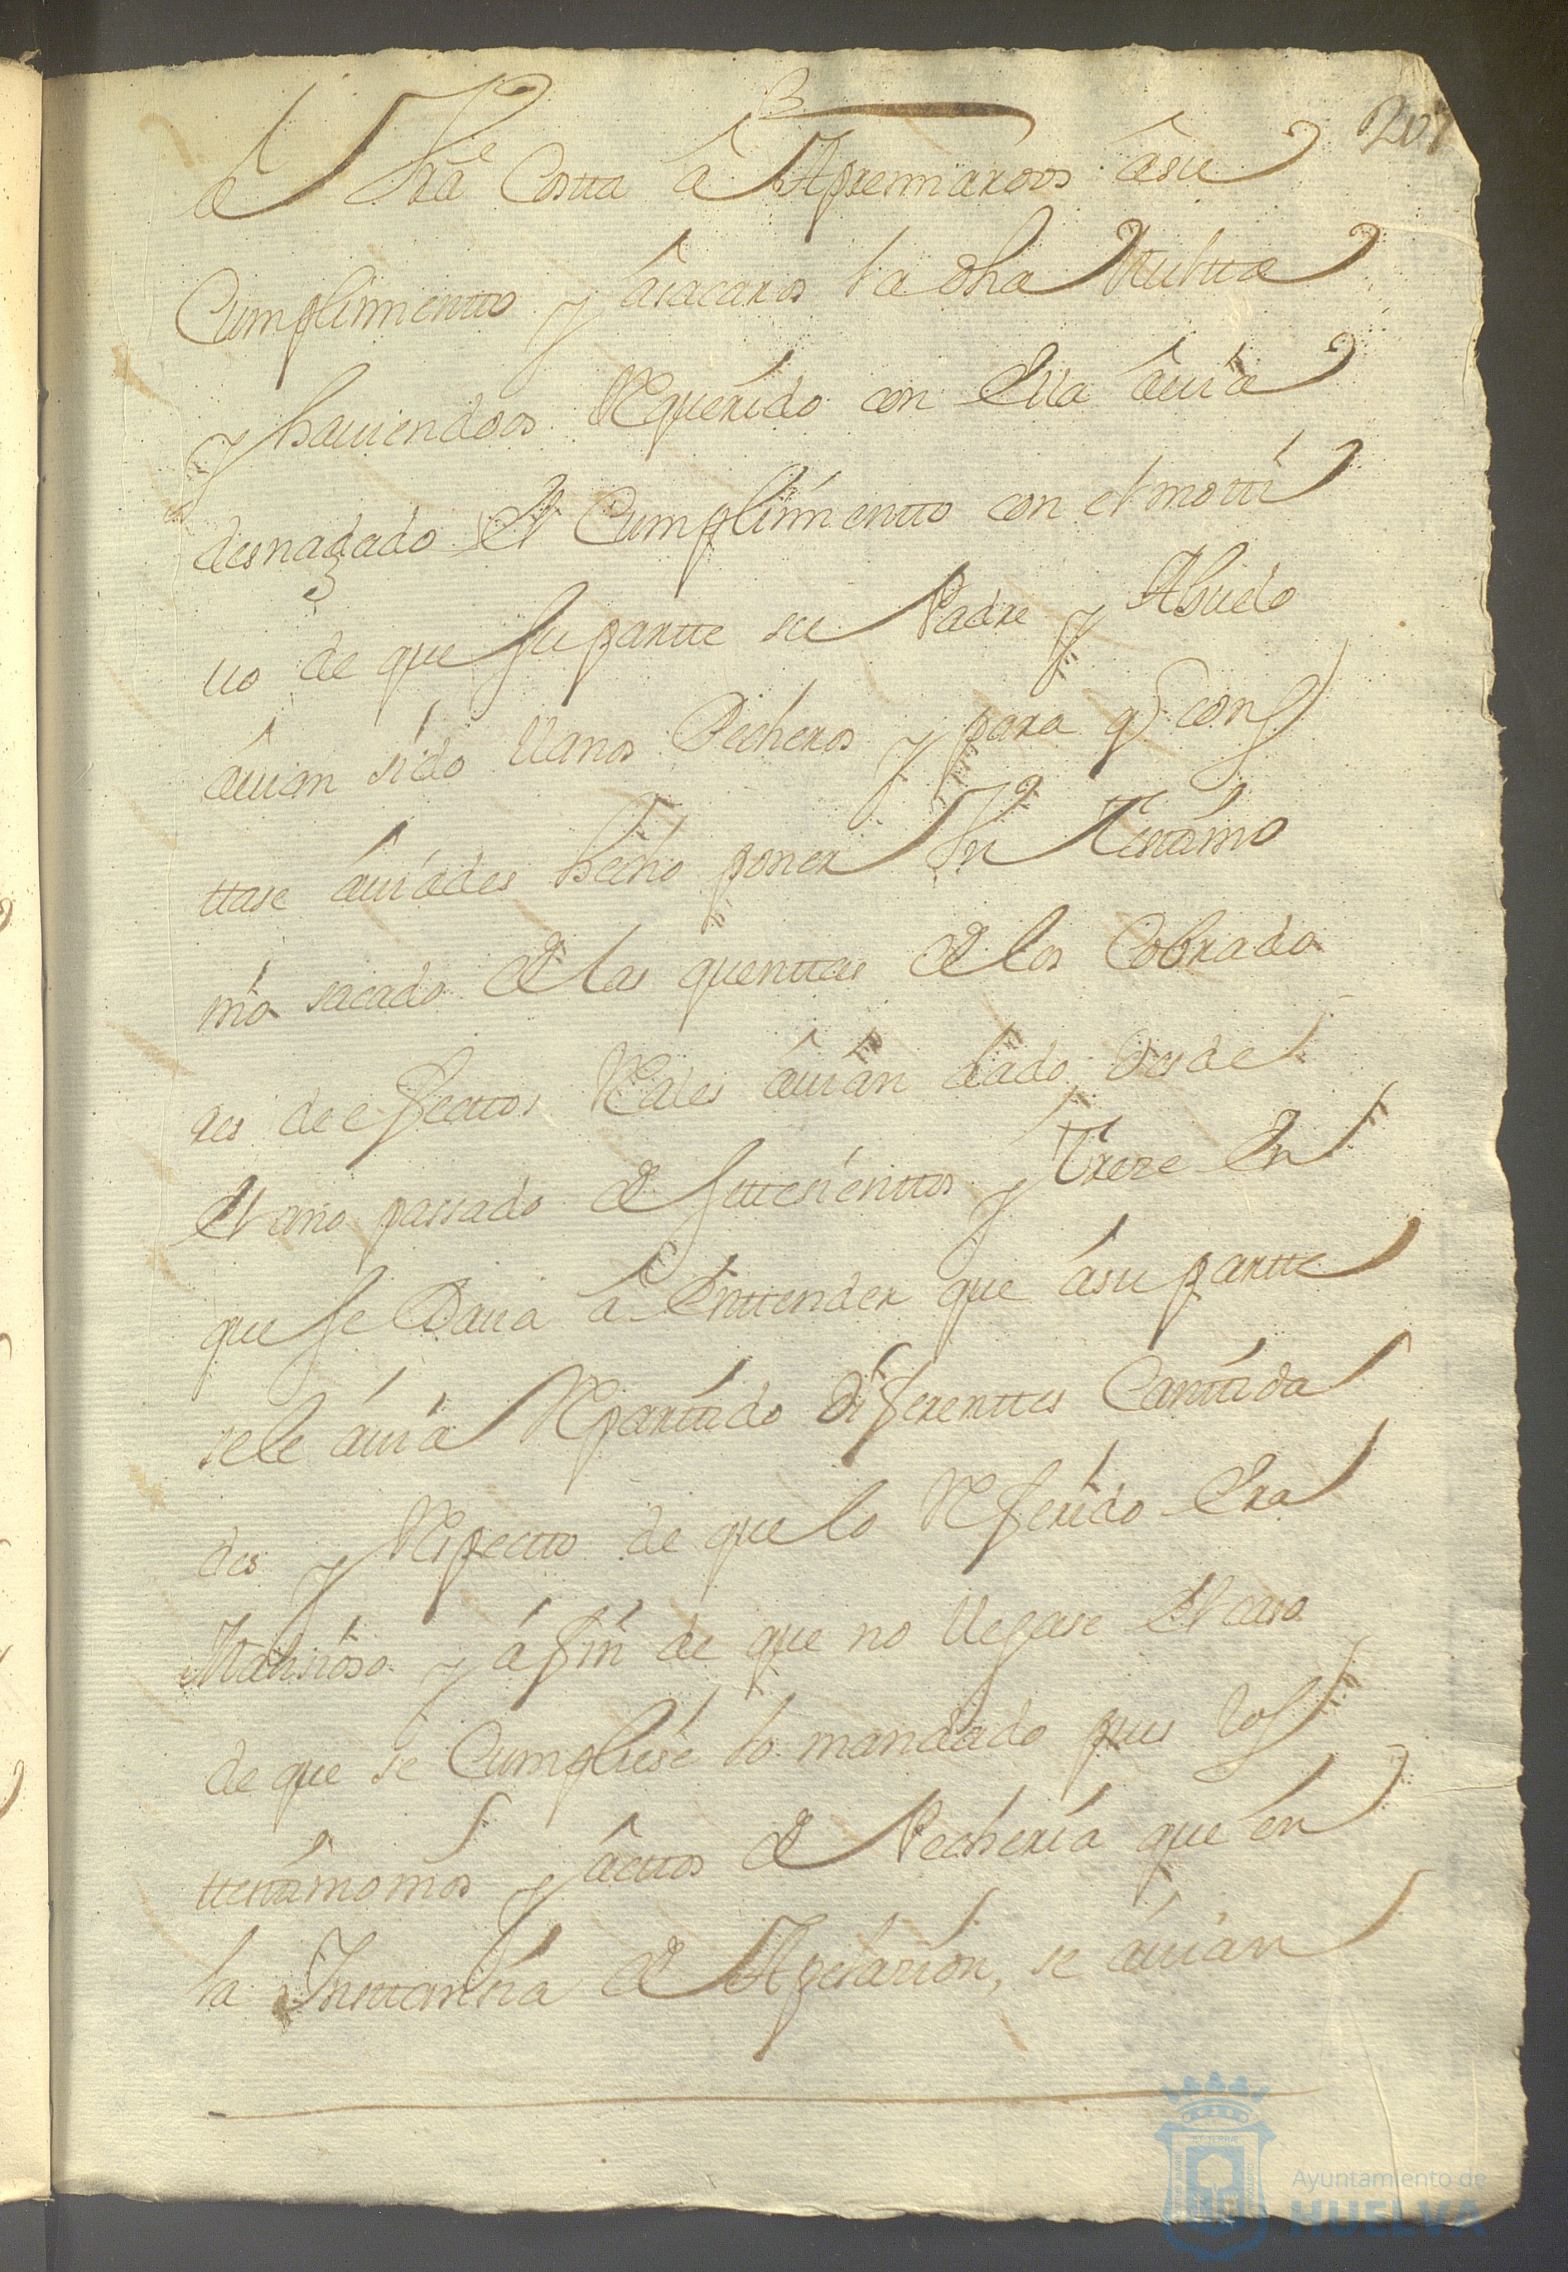 207
a Vrã Costta â Apremiaroos âsu
Cumplimientto y âsacaros la dha Multta
y haviendoos Requerido con Ella âuia
desnagado El Cumplimientto con el motti
uo de que su partte su Padre y Abuelo
âuian sido llanos Pecheros y para q̃ cons
ttase âuiades hecho poner Un Testimo
nio sacado de las quenttas de los Cobrado
res de efecttos Reales âuian dado desde
El año passado de Settesienttos y Treze En
que se Daua â Enttender que âsu partte
sele âuia Reparttido diferenttes Canttida
des y Respectto de que lo Referido Era
Malisioso y â fin de que no llegase El caso
de que se Cumpliese lo mandado pues los
ttestimonios y âcttos de Pecheria que en
la Insttansia de Apelasion, se âuian
Ayuntamiento de
HUELVA